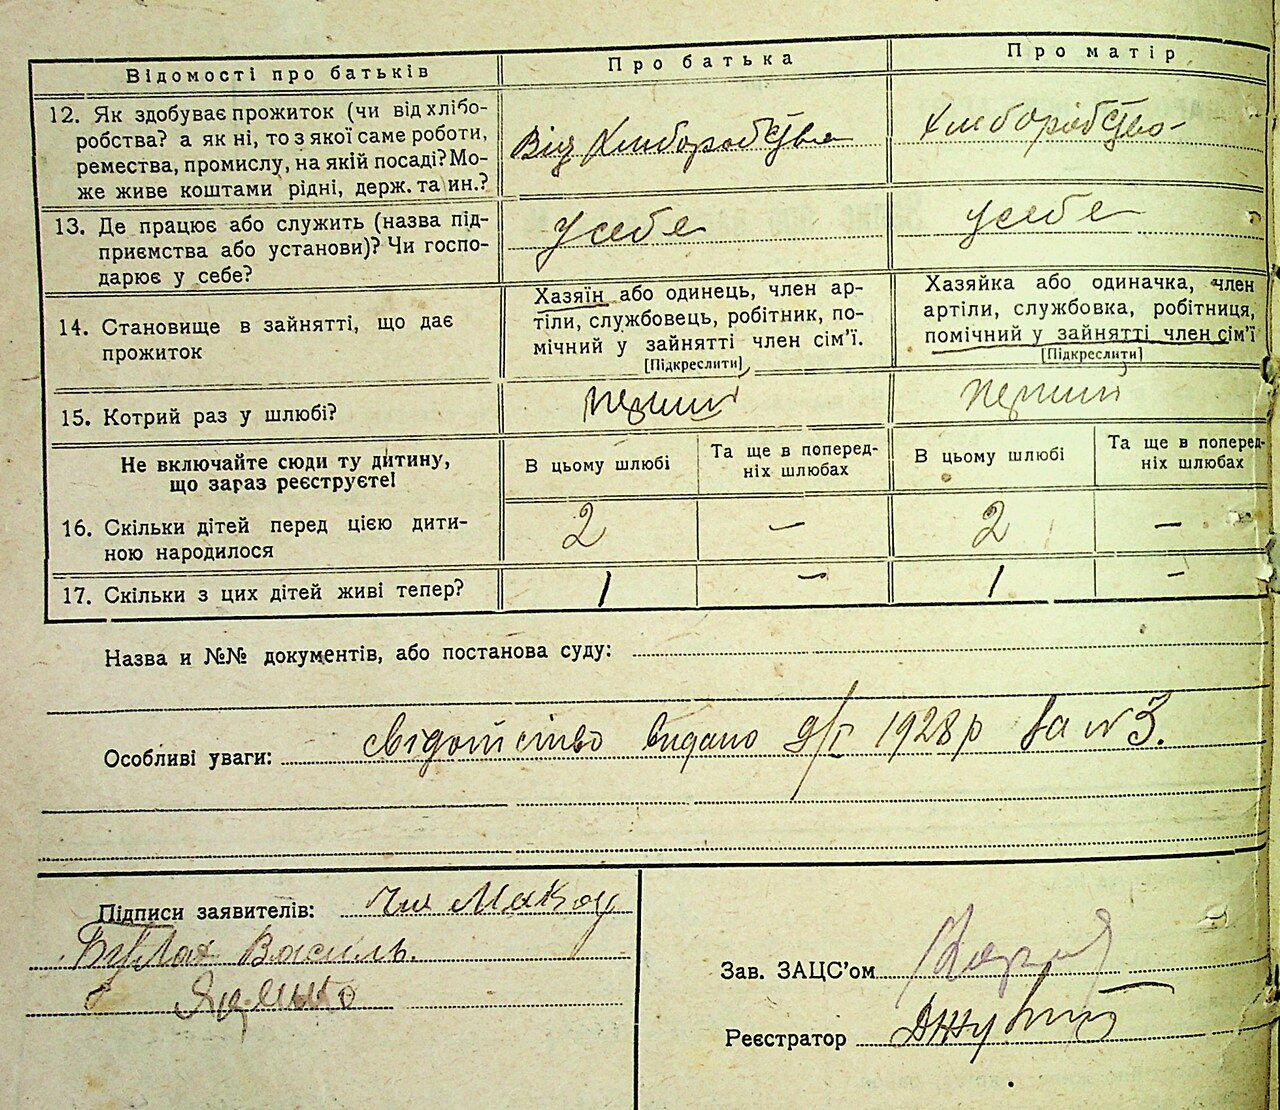 Відомості про батьків
Про батька
Про матір
12. Як здобуває прожиток (чи від хлібо-
робства? а як ні, то з якої саме роботи,
ремества, промислу, на якій посаді? Мо-
же живе коштами рідні, держ. та ин.?
Від Хлиборобства
Хлиборобство
13. Де працює або служить (назва під-
приємства або установи)? Чи госпо-
дарює у себе?
У себе
У себе
14. Становище в зайнятті, що дає
прожиток
Хазяїн або одинець, член ар-
тіли, службовець, робітник, по-
мічний у зайнятті член сім’ї.
[Підкреслити]
Хазяйка або одиначка, член
артіли, службовка, робітниця,
помічний у зайнятті член сім’ї
[Підкреслити]
15. Котрий раз у шлюбі?
перший
перший
Не включайте сюди ту дитину,
що зараз реєструєте!
В цьому шлюбі
Та ще в поперед-
ніх шлюбах
В цьому шлюбі
Та ще в поперед-
ніх шлюбах
16. Скільки дітей перед цією дити-
ною народилося
2
–
2
–
17. Скільки з цих дітей живі тепер?
1
–
1
–
Назва и №№ документів, або постанова суду:
Особливі уваги: свідоцтво видано 9/I 1928 р за № 3.
Підписи заявителів:
Булах Василь.
Зав. ЗАЦС’ом
Реєстратор